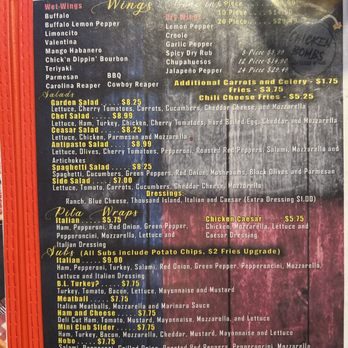 Wings
Wet Wings
Buffalo
Buffalo Lemon Pepper
Limoncito
Valentina
Mango Habanero
Chick'n Dippin' Bourbon
Teriyaki
Parmesan BBQ
Carolina Reaper Cowboy Reaper
Dry Wings
Lemon Pepper
Creole
Garlic Pepper
Spicy Dry Rub
Chupahuesos
Jalapeño Pepper
Additional Carrots and Celery - $1.75
Fries - $3.75
Chili Cheese Fries - $5.25
Salads
Garden Salad .... $8.25
Lettuce, Cherry Tomatoes, Carrots, Cucumbers, Cheddar Cheese, and Mozzarella
Chef Salad .... $8.99
Lettuce, Ham, Turkey, Chicken, Cherry Tomatoes, Hard Boiled Egg, Cheddar and Mozzarella
Ceasar Salad .... $8.25
Lettuce, Chicken, Parmesan and Mozzarella
Antipasto Salad .... $8.99
Lettuce, Olives, Cherry Tomatoes, Pepperoni, Roasted Red Peppers, Salami, Mozzarella and
Artichokes
Spaghetti Salad .... $8.25
Spaghetti, Cucumbers, Green Peppers, Red Onion, Mushrooms, Black Olives and Parmesan
Side Salad .... $7.00
Lettuce, Tomato, Carrots, Cucumbers, Cheddar Cheese, Mozzarella
Dressings
Ranch, Blue Cheese, Thousand Island, Italian and Caesar (Extra Dressing $1.00)
Pita Wraps
Italian .... $5.75
Ham, Pepperoni, Red Onion, Green Pepper,
Pepperoncini, Mozzarella, Lettuce and
Italian Dressing
Chicken Caesar $5.75
Chicken, Mozzarella, Lettuce and
Caesar Dressing
Subs (All Subs include Potato Chips, $2 Fries Upgrade)
Italian .... $9.00
Ham, Pepperoni, Turkey, Salami, Red Onion, Green Pepper, Pepperoncini, Mozzarella,
Lettuce and Italian Dressing
B.L. Turkey? .... $7.75
Turkey, Tomato, Bacon, Lettuce, Mayonnaise and Mustard
Meatball .... $7.75
Italian Meatballs, Mozzarella and Marinara Sauce
Ham and Cheese .... $7.75
Deli Cut Ham, Tomato, Mustard, Mayonnaise, Mozzarella, and Lettuce
Mini Club Slider .... $7.75
Ham, Turkey, Bacon, Mozzarella, Cheddar, Mustard, Mayonnaise and Lettuce
Hobo .... $7.75